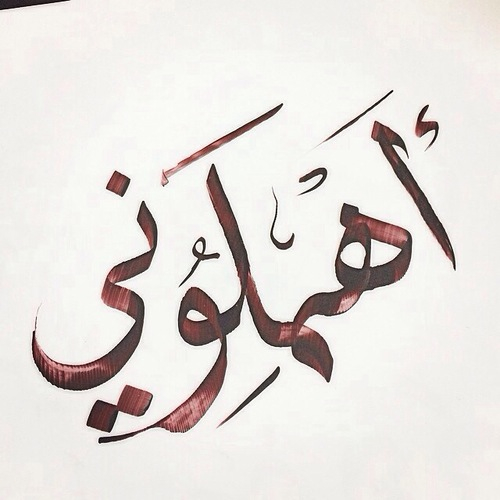 أهملوني